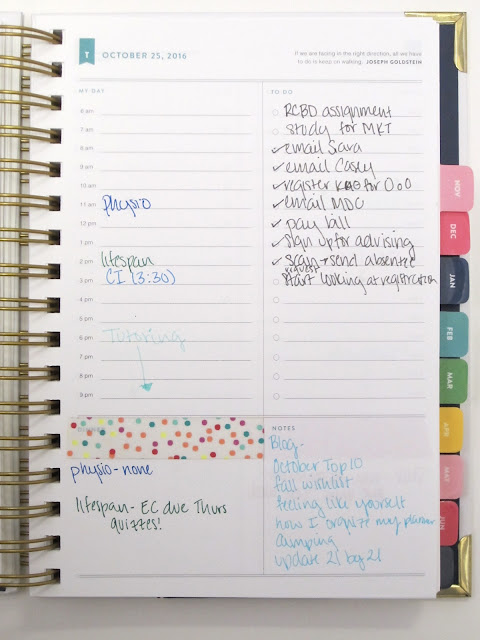 T
OCTOBER 25, 2016
If we are facing in the right direction, all we have
to do is keep on walking. JOSEPH GOLDSTEIN
MY DAY
6 am
7 am
8 am
9 am
10 am
11 am
physio
12 pm
1 pm
2 pm
lifespan
3 pm
CI (3:30)
4 pm
5 pm
6 pm
Tutoring
7 pm
8 pm
9 pm
physio - none
lifespan - EC due Thurs
quizzes!
TO DO
RCBD assignment
study for MKT
✓ email Sara
✓ email Casey
✓ register for O o O
✓ email MDC
✓ pay bill
✓ sign up for advising
✓ scan → send absentee
request
start looking at registration
NOTES
Blog -
October Top 10
fall wishlist
feeling like yourself
how I organize my planner
camping
update 21 by 21
NOV
DEC
JAN
FEB
MAR
APR
MAY
JUN